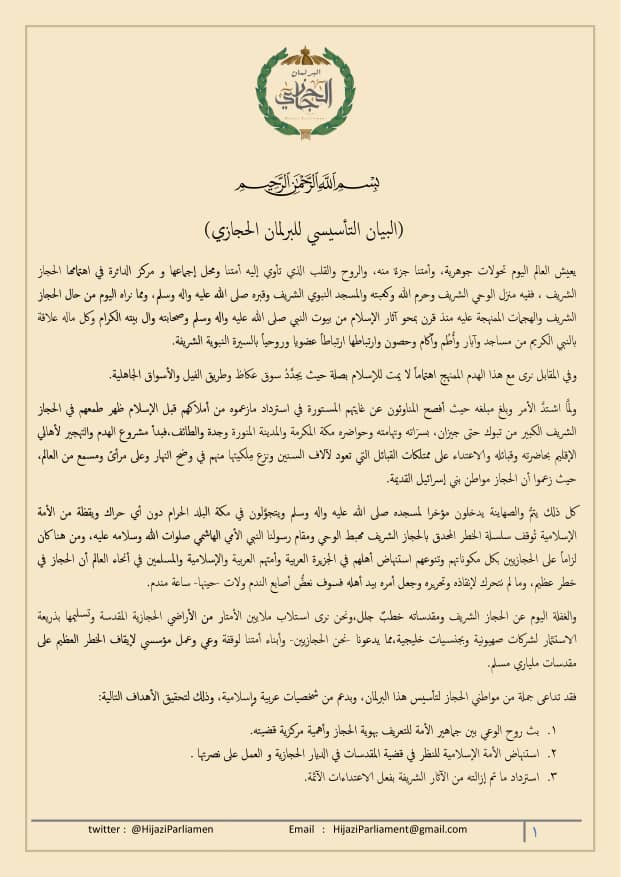 البرلمان
الحجازي
بِسْمِ اللَّهِ الرَّحْمَٰنِ الرَّحِيمِ
(البيان التأسيسي للبرلمان الحجازي)
يعيش العالم اليوم تحولات جوهرية، وأمتنا جزءٌ منه، والروح والقلب الذي تأوي إليه أمتنا ومحل إجماعها و مركز الدائرة في اهتمامها الحجاز
الشريف ، ففيه منزل الوحي الشريف وحرم الله وكعبته والمسجد النبوي الشريف وقبره صلى الله عليه واله وسلم، ومما نراه اليوم من حال الحجاز
الشريف والهجمات الممنهجة عليه منذ قرن بمحو آثار الإسلام من بيوت النبي صلى الله عليه واله وسلم وصحابته وال بيته الكرام وكل ماله علاقة
بالنبي الكريم من مساجد وآبار وأُطُم وآكام وحصون وارتباطها ارتباطاً عضويا وروحياً بالسيرة النبوية الشريفة.
وفي المقابل نرى مع هذا الهدم الممنهج اهتماماً لا يمت للإسلام بصلة حيث يجدَّدُ سوق عكاظ وطريق الفيل والأسواق الجاهلية.
ولمَّا اشتدَّ الأمر وبلغ مبلغه حيث أفصح المناوئون عن غايتهم المستورة في استرداد مازعموه من أملاكهم قبل الإسلام ظهر طمعهم في الحجاز
الشريف الكبير من تبوك حتى جيزان، بسرَاته وتهامته وحواضره مكة المكرمة والمدينة المنورة وجدة والطائف،فبدأ مشروع الهدم والتهجير لأهالي
الإقليم بحاضرته وقبائله والاعتداء على ممتلكات القبائل التي تعود لآلاف السنين ونزع ملكيتها منهم في وضح النهار وعلى مرأىً ومسمع من العالم،
حيث زعموا أن الحجاز مواطن بني إسرائيل القديمة.
كل ذلك يتمُّ والصهاينة يدخلون مؤخرا لمسجده صلى الله عليه واله وسلم ويتجوَّلون في مكة البلد الحرام دون أي حراك ويقظة من الأمة
الإسلامية تُوقف سلسلة الخطر المحدق بالحجاز الشريف محبط الوحي ومقام رسولنا النبي الأمي الهاشمي صلوات الله وسلامه عليه، ومن هنا كان
لزاماً على الحجازيين بكل مكوناتهم وتنوعهم استنهاض أهلهم في الجزيرة العربية وأمتهم العربية والإسلامية والمسلمين في أنحاء العالم أن الحجاز في
خطر عظيم، وما لم نتحرك لإنقاذه وتحريره وجعل أمره بيد أهله فسوف نعضُّ أصابع الندم ولات -حينها- ساعة مندم.
والغفلة اليوم عن الحجاز الشريف ومقدساته خطبٌ جلل،ونحن نرى استلاب ملايين الأمتار من الأراضي الحجازية المقدسة وتسليمها بذريعة
الاستثمار لشركات صهيونية وبجنسيات خليجية،مما يدعونا نحن الحجازيين- وأبناء أمتنا لوقفة وعي وعمل مؤسسي لإيقاف الخطر العظيم على
مقدسات ملياري مسلم.
فقد تداعى جملة من مواطني الحجاز لتأسيس هذا البرلمان، وبدعم من شخصيات عربية وإسلامية، وذلك لتحقيق الأهداف التالية:
١. بث روح الوعي بين جماهير الأمة للتعريف بهوية الحجاز وأهمية مركزية قضيته.
٢. استنهاض الأمة الإسلامية للنظر في قضية المقدسات في الديار الحجازية و العمل على نصرتها .
٣. استرداد ما تم إزالته من الآثار الشريفة بفعل الاعتداءات الآثمة.
twitter : @HijaziParliamen Email : HijaziParliament@gmail.com ١